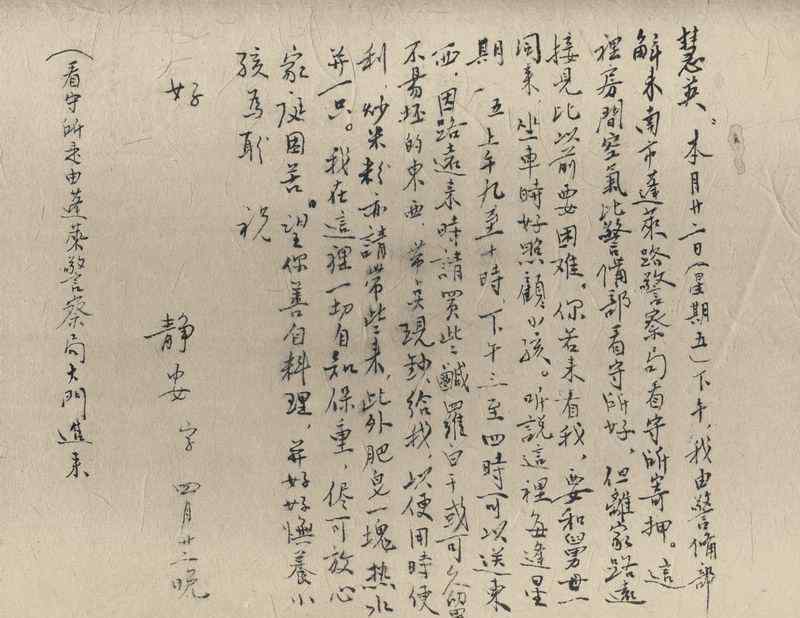 慧英：本月廿二日（星期五）下午，我由警備部
解来南市蓬萊路警察局看守所寄押。這
裡房間空氣比警備部看守所好，但離家路遠
接見比以前要困难。你若来看我，要和舅母
同来，坐車時好照顧小孩。听說這裡每逢星
期一、五上午九至十時，下午三至四時可以送東
西，因路遠来時請買些鹹羅白干或可久留
不易坯的東西，带点現鈔給我，以便用時便
利，炒米粉亦請带些来，此外肥皂一塊热水
并一只。我在這裡一切自知保重，侭可放心
家庭困苦。望你善自料理，并好好撫養小
孩為盼 祝
好
静安 字 四月廿二晚
（看守所是由蓬萊警察局大門進来